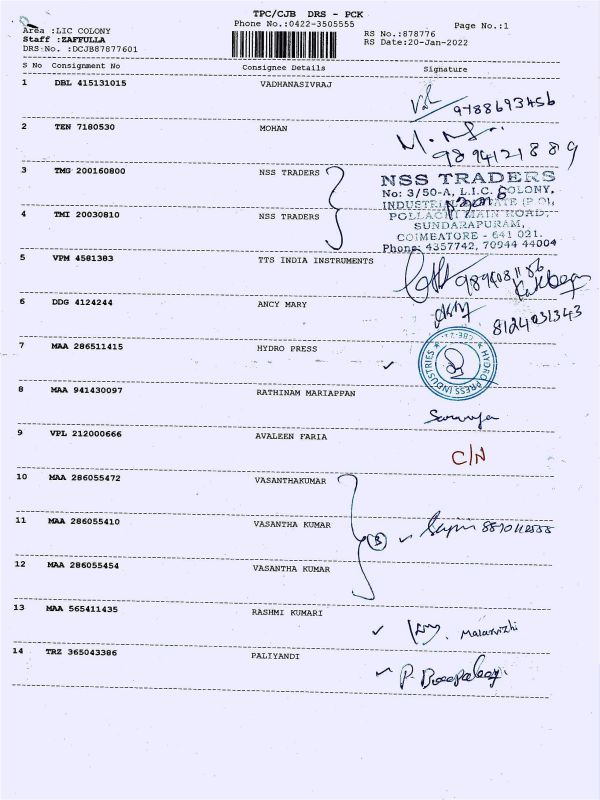 TPC/CJB DRS - PCK
Phone No.:0422-3505555
Page No.:1
Area :LIC COLONY
RS No.:878776
Staff :ZAFFULLA
RS Date:20-Jan-2022
DRS:No. :DCJB87877601
S No Consignment No Consignee Details Signature
1 DBL 415131015 VADHANASIVRAJ
9788693456
2 TEN 7180530 MOHAN
9894121889
3 TMG 200160800 NSS TRADERS
NSS TRADERS
No: 3/50-A, L.I.C. COLONY,
INDUSTRIAL ESTATE (P.O),
4 TMI 20030810 NSS TRADERS
POLLACHI MAIN ROAD,
SUNDARAPURAM,
COIMBATORE - 641 021.
Phone: 4357742, 70944 44004
5 VPM 4581383 TTS INDIA INSTRUMENTS
6 DDG 4124244 ANCY MARY
8124031343
7 MAA 286511415 HYDRO PRESS
HYDRO PRESS INDUSTRIES
8 MAA 941430097 RATHINAM MARIAPPAN
Saranya
9 VPL 212000666 AVALEEN FARIA
C/N
10 MAA 286055472 VASANTHAKUMAR
11 MAA 286055410 VASANTHA KUMAR
3
12 MAA 286055454 VASANTHA KUMAR
13 MAA 565411435 RASHMI KUMARI
Malarvizhi
14 TRZ 365043386 PALIYANDI